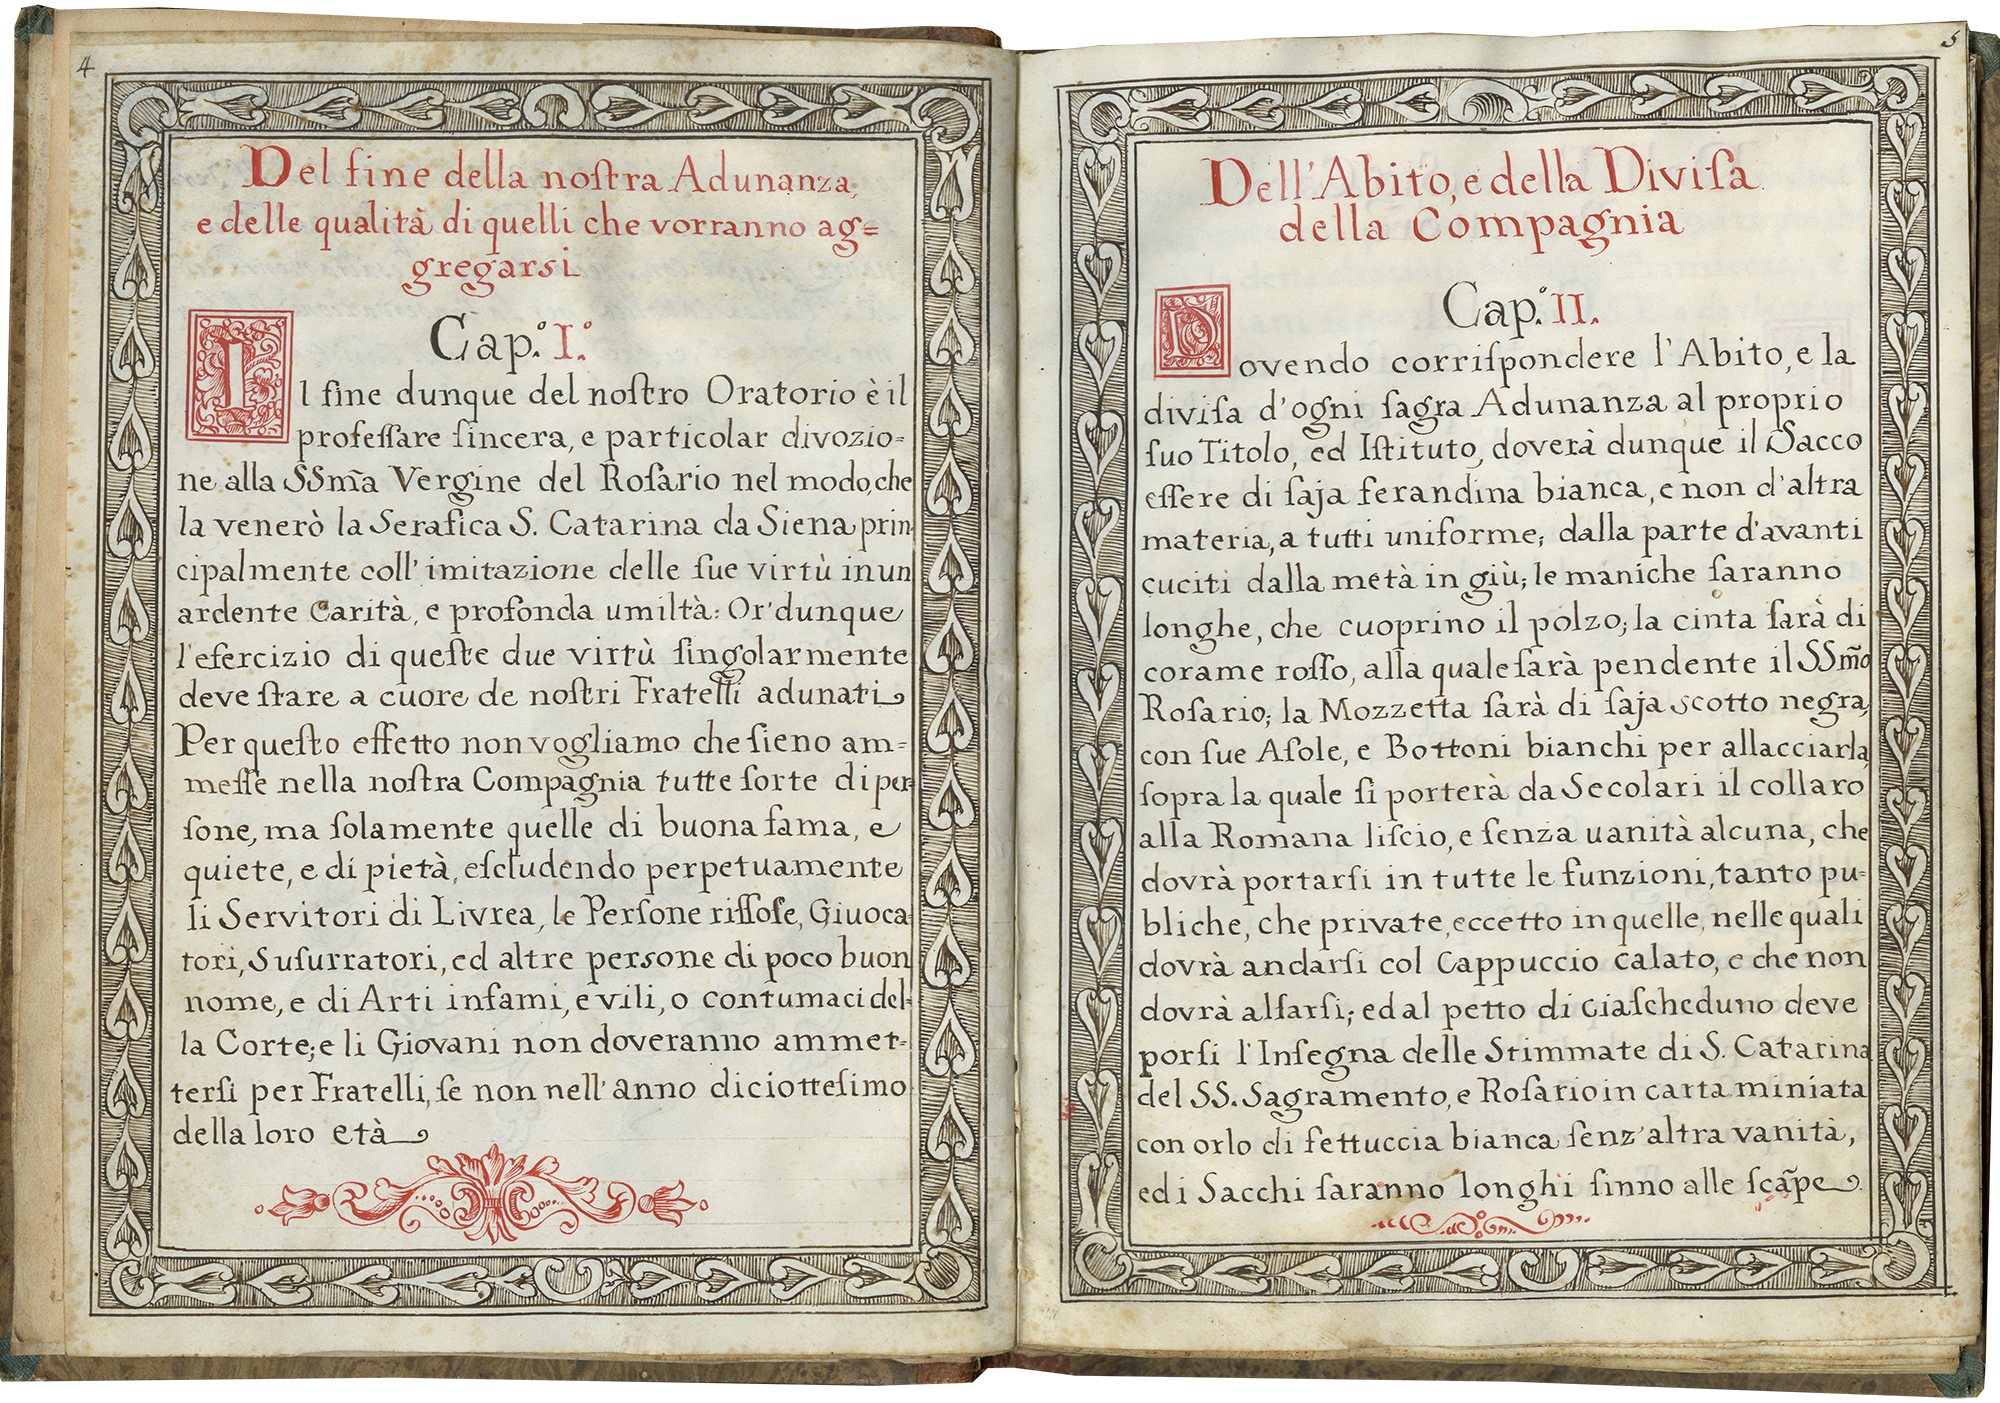 4
Del fine della noſtra Adunanza,
e delle qualità di quelli che vorranno ag=
gregarsi
Cap.º I.º
Il fine dunque del noſtro Oratorio è il
profeſſare ſincera, e particolar divozio=
ne alla SSm̃a Vergine del Roſario nel modo, che
la venerò la Serafica S. Catarina da Siena prin=
cipalmente coll' imitazione delle ſue virtù in un
ardente Carità, e profonda umiltà: Or' dunque
l'eſercizio di queſte due virtù ſingolarmente
deve ſtare a cuore de noſtri Fratelli adunati
Per queſto effetto non vogliamo che ſieno am=
meſſe nella noſtra Compagnia tutte ſorte di per=
ſone, ma ſolamente quelle di buona fama, e
quiete, e di pietà, eſcludendo perpetuamente
li Servitori di Livrea, le Perſone riſſoſe, Giuoca=
tori, Suſurratori, ed altre persone di poco buon
nome, e di Arti infami, e vili, o contumaci del=
la Corte; e li Giovani non doveranno ammet=
terſi per Fratelli, ſe non nell' anno diciotteſimo
della loro età
5
Dell'Abito, e della Diviſa
della Compagnia
Cap.º II.
Dovendo corriſpondere l'Abito, e la
diviſa d'ogni ſagra Adunanza al proprio
ſuo Titolo, ed Iſtituto, doverà dunque il Sacco
eſſere di ſaja ferandina bianca, e non d'altra
materia, a tutti uniforme; dalla parte d'avanti
cuciti dalla metà in giù; le maniche ſaranno
longhe, che cuoprino il polzo; la cinta ſarà di
corame roſſo, alla quale ſarà pendente il SSm̃o
Roſario; la Mozzetta ſarà di ſaja scotto negra,
con ſue Aſole, e Bottoni bianchi per allacciarla,
ſopra la quale ſi porterà da Secolari il collaro
alla Romana liſcio, e ſenza uanità alcuna, che
dovrà portarſi in tutte le funzioni, tanto pu=
bliche, che private, eccetto in quelle, nelle quali
dovrà andarſi col Cappuccio calato, e che non
dovrà alſarſi; ed al petto di ciaſcheduno deve
porſi l'Inſegna delle Stimmate di S. Catarina
del SS. Sagramento, e Roſario in carta miniata
con orlo di fettuccia bianca ſenz'altra vanità,
ed i Sacchi ſaranno longhi ſinno alle ſcãpe